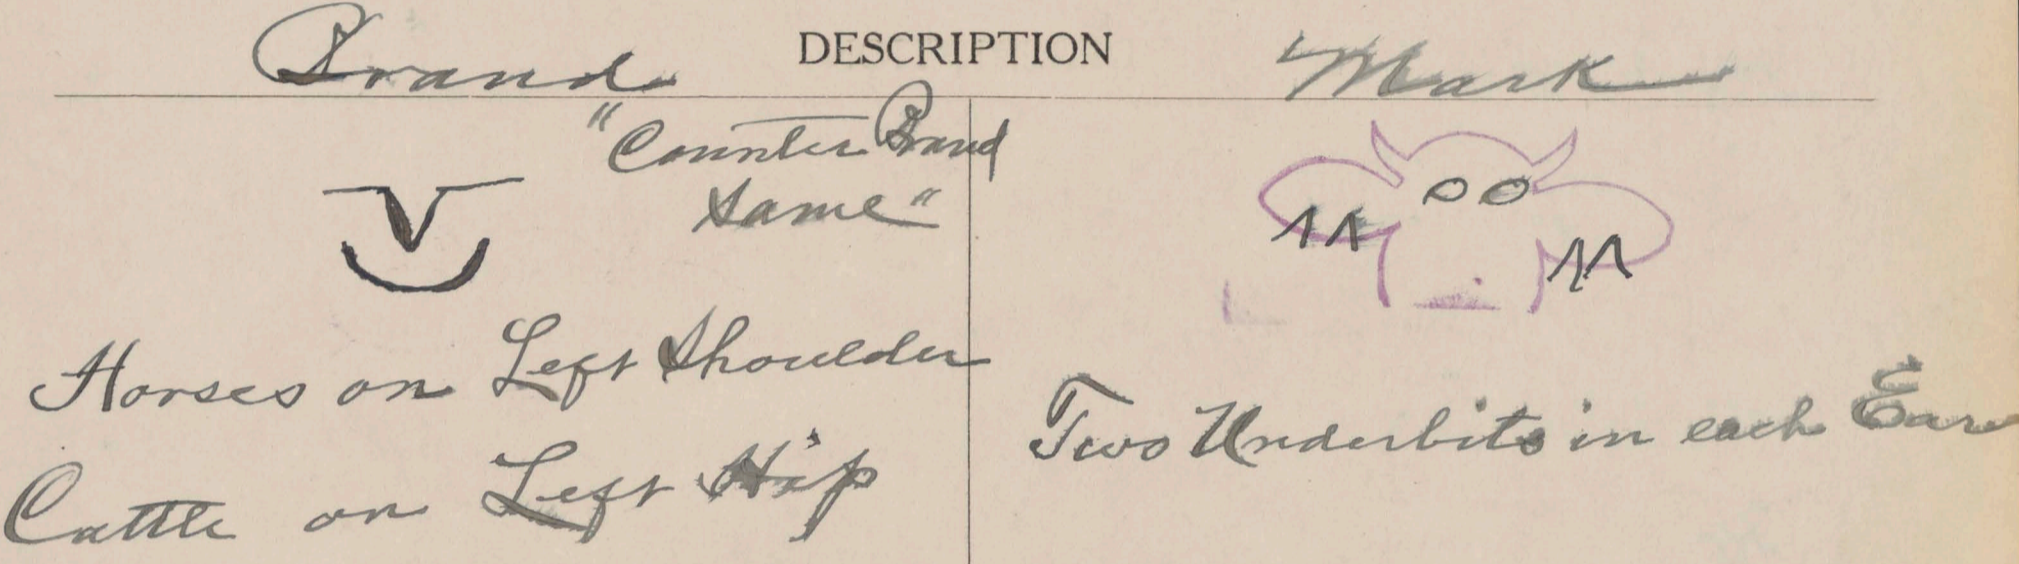 Brand DESCRIPTION Mark
"Counter Brand
Same"
Horses on Left Shoulder
Cattle on Left Hip
Two Underbits in each Ear